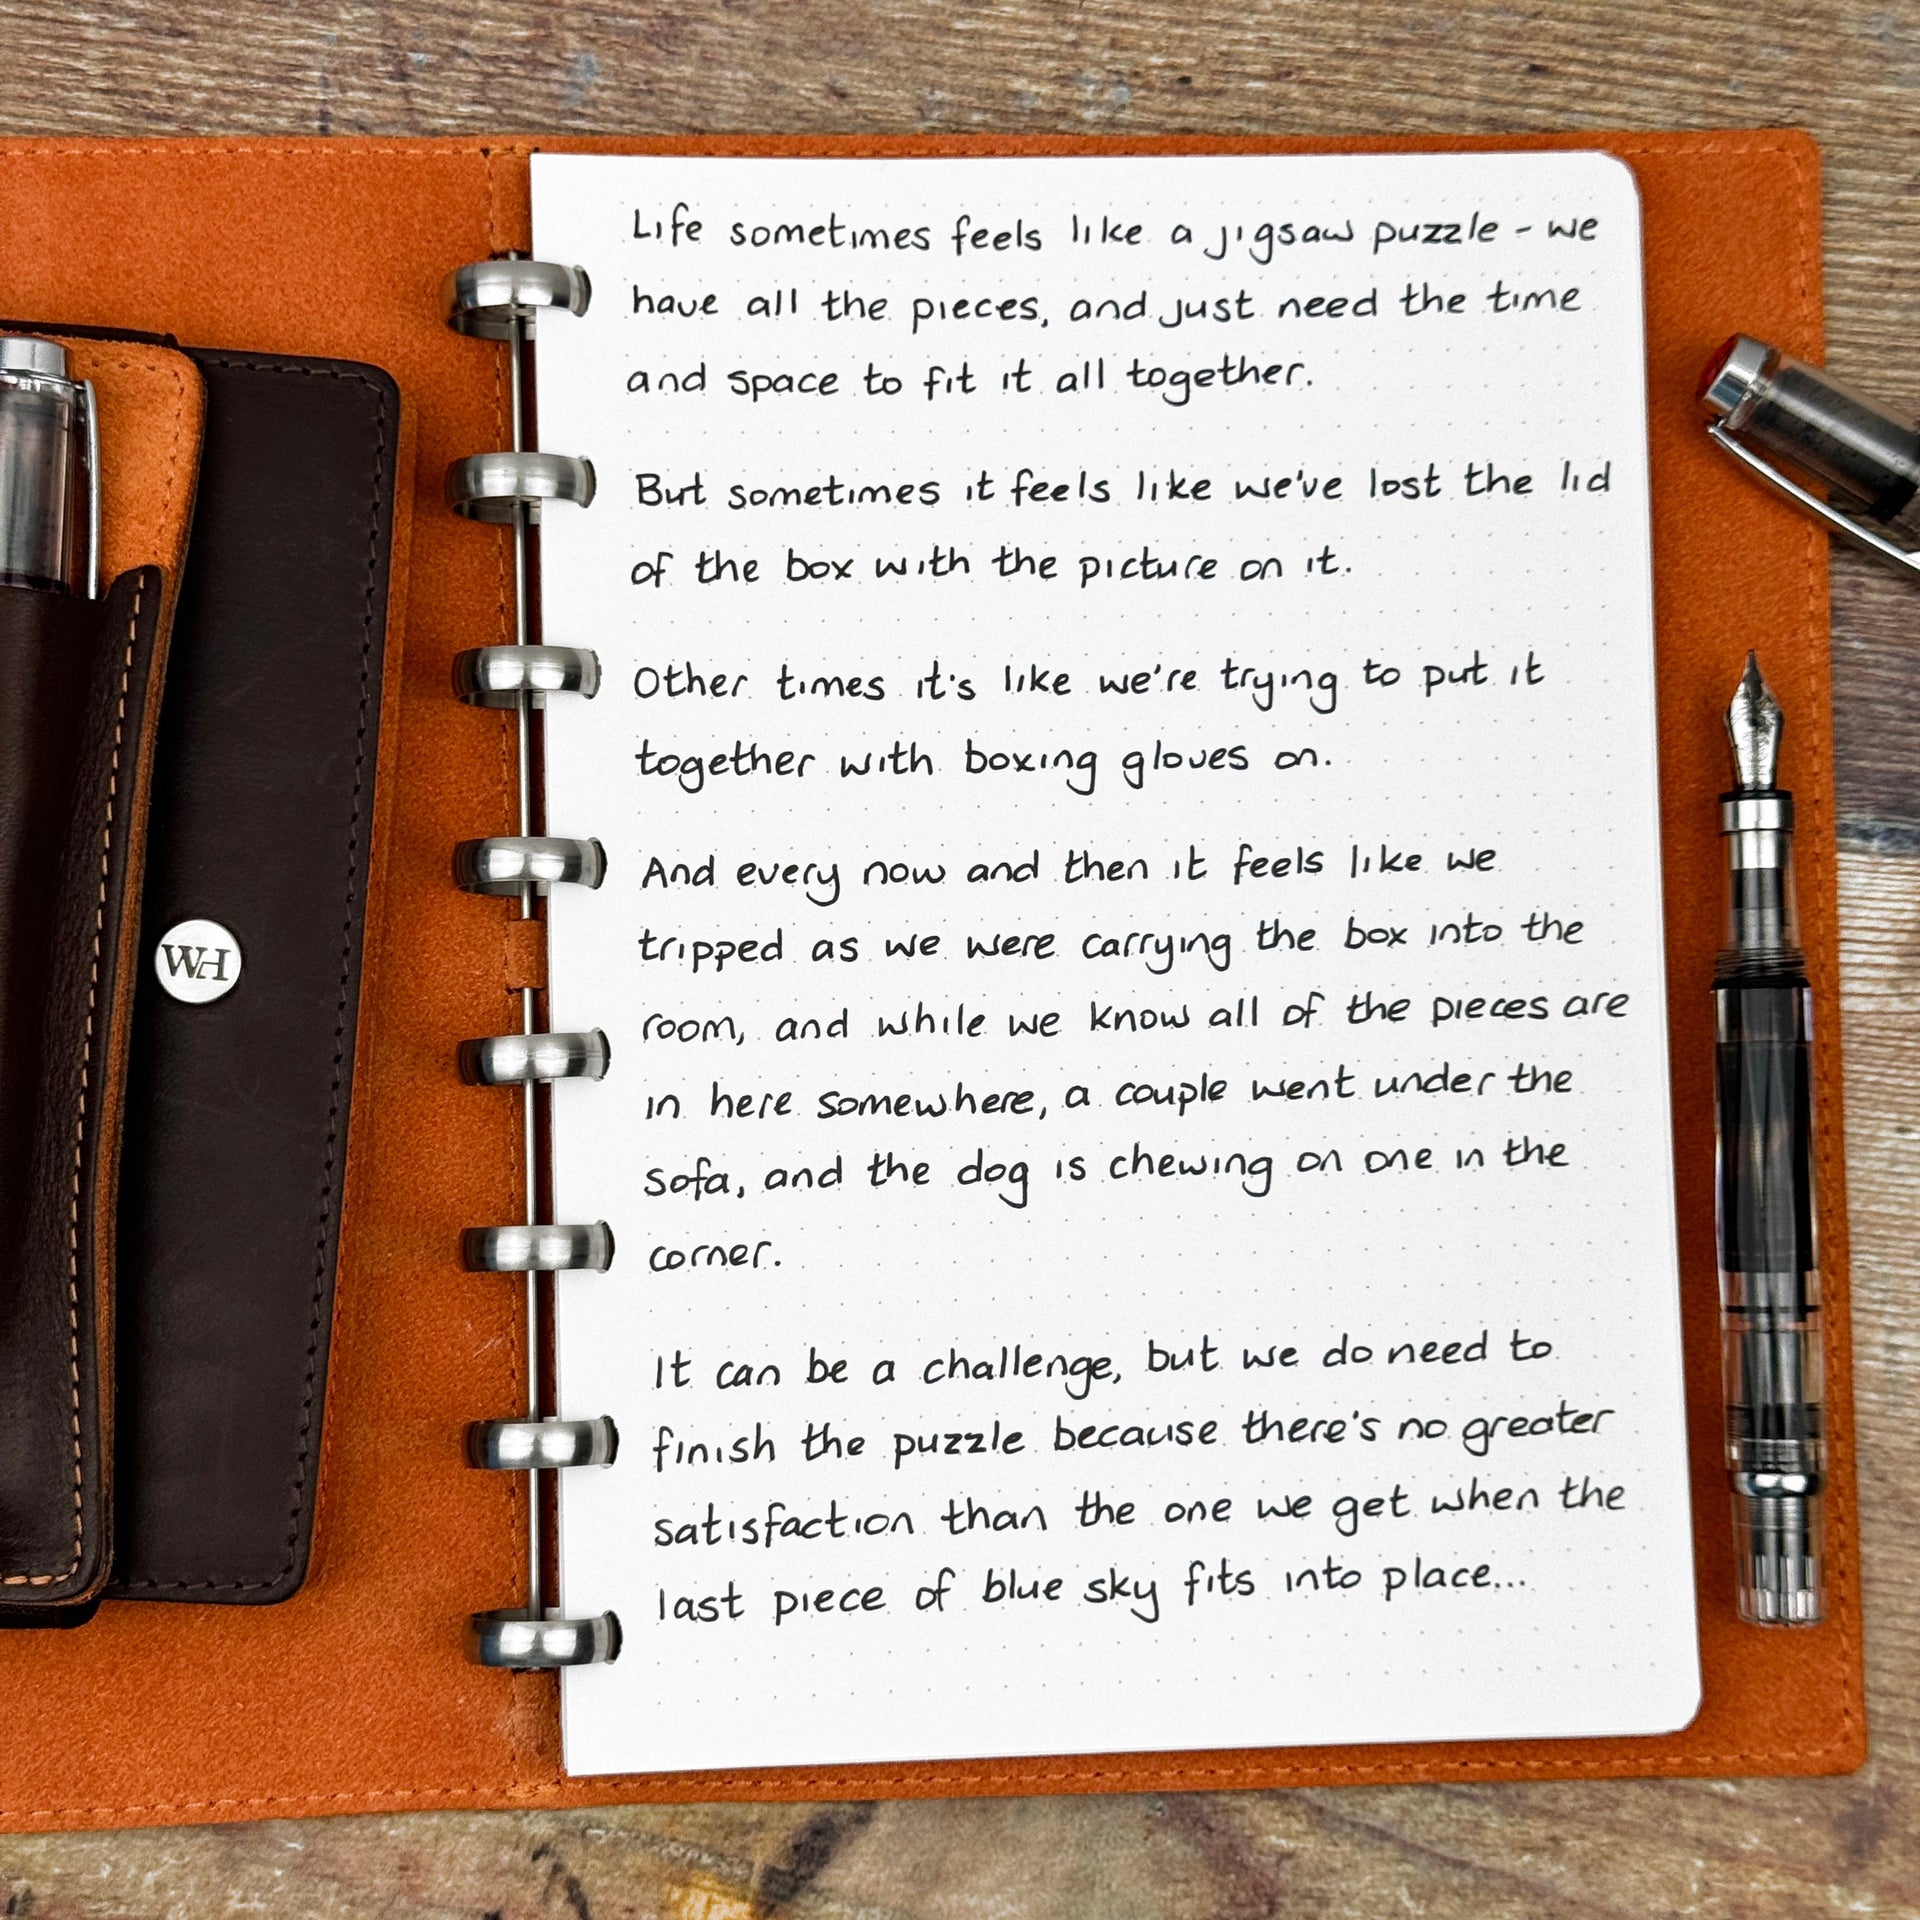 Life sometimes feels like a jigsaw puzzle - we
have all the pieces, and just need the time
and space to fit it all together.
But sometimes it feels like we've lost the lid
of the box with the picture on it.
Other times it's like we're trying to put it
together with boxing gloves on.
And every now and then it feels like we
tripped as we were carrying the box into the
room, and while we know all of the pieces are
in here somewhere, a couple went under the
sofa, and the dog is chewing on one in the
corner.
It can be a challenge, but we do need to
finish the puzzle because there's no greater
satisfaction than the one we get when the
last piece of blue sky fits into place...
WH